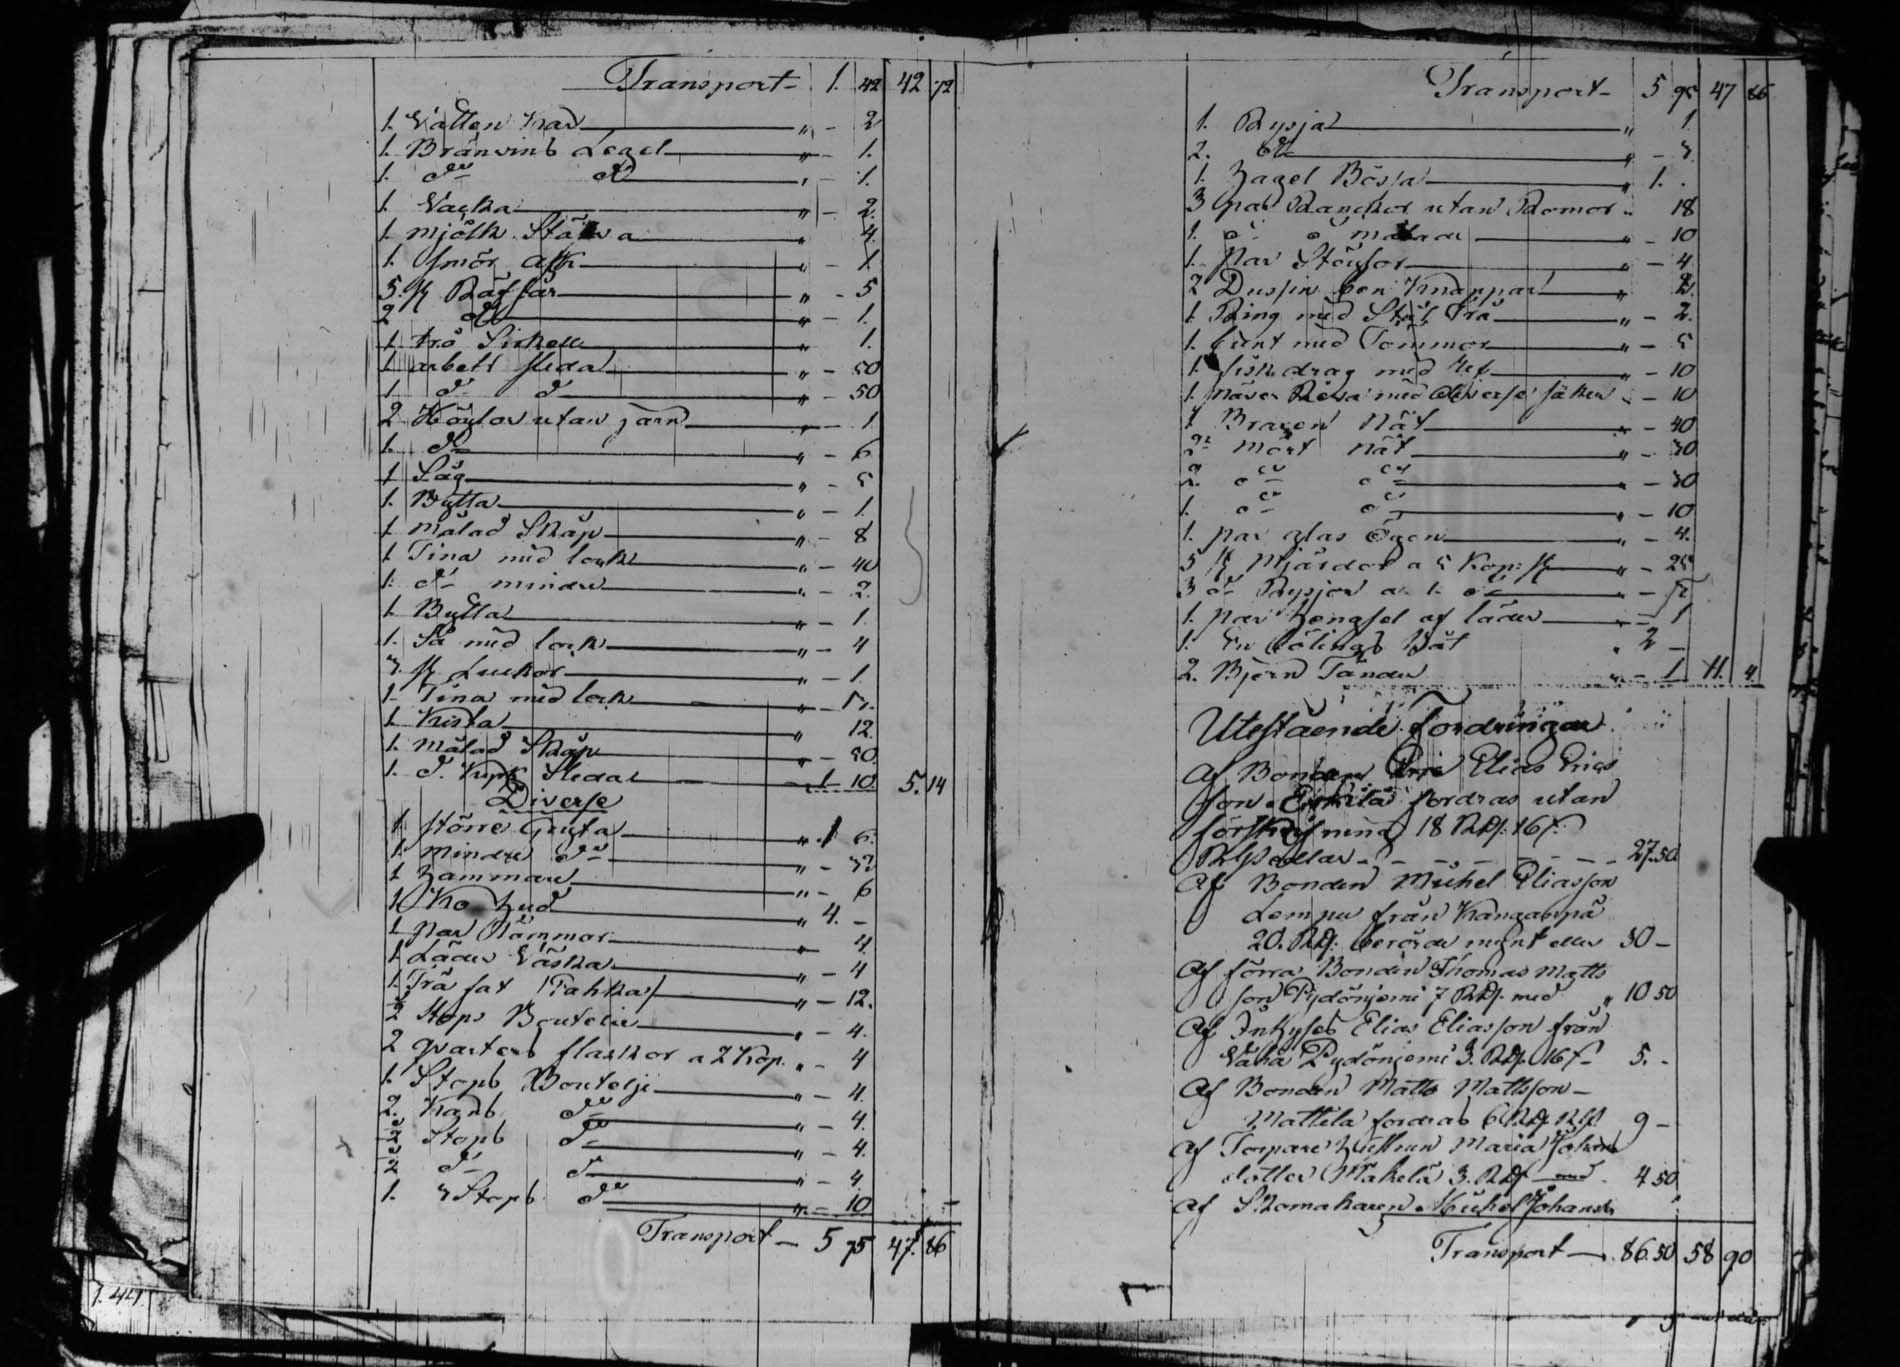 Transport 1. 42 42 72
1. Vatten Kar " - 2
1. Bränvins Legel " - 1.
1. do do " - 1.
1. Vacka " - 2.
1. Mjölk Stäwa " 4.
1. Smör ask " - 1
5. st Räfsar " - 5
2 do " - 1.
1. trä " 1.
1 arbets släda " - 50
1 do do " - 50
2 Höylar utan järn " - 1
1. do " - 6
1 Såg " - 5
1. Bytta " - 1.
1 Målad Skåp " - 8
1 Tina med lock " - 40
1. do mindre " - 2.
1. Bytta " - 1
1. Så med lock " - 4
3. st Luckor " - 1.
1. Tina med lock "
1 Kista " 12.
1. Målad Skåp " - 50
1. do Sledar - 1 10. 5. 14
Diverse
1. större Gryta " 1 6.
1. Mindre do " -
1 Hammare " - 6
1 Ko hud " 4. -
1 par Tömmor " 4.
1 Läder Väska " - 4
1. Trä fat " - 12.
Stops Boutelie " - 4.
2 qvarters flaskor a 2 Kop. " - 4
1. Stops Boutelje " - 4.
2. Kans do " - 4.
2 Stops do " - 4.
2 do do " - 4
1. Stops do " - 10
Transport - 5 75 47. 86
Transport - 5 95 47 86
1. Ryssja " 1.
2. do " - 3.
1. Hagel Bössa " 1. .
3 par Ranckor utan Romor " 18
1. do do målade " - 10
1. par Stöysor " - 4
2 Dussin ben Knappar " 2.
1. Ring med Stål Trå " - 2.
1. bunt med Tömmor " - 5
1. fiskdrag med ref " - 10
1. näver Räsa med diverse saker " - 10
1 Braxen Nät " - 40
2 Mört Nät " - 30
2. do do " - 30
1. do do " - 10
1. par glas Ögon " - 4.
5 st Mjärdor a 5 Kop: st " - 25
3 do Rysjor a
1. par Hengsel af läder - 1
1. En Båt " 2 -
2. Björn Tänder " - 1 11. 4
Utestående fordringar
Af Bonden Elias Erics
son fordras utan
förskrifning 18 Rdr. 16 f
eller - - - - - 27.50
Af Bonden Michel Eliasson
Lempu från Kangaspä
20. Rdr. berörde mynt eller 30 -
Af förra Bonden Thomas Matts
son Pydönjemi 7 Rdr. med " 10 50
Af Inhyses Elias Eliasson från
Vähä Pydönjemi 3. Rdr. 16 f - 5. -
Af Bonden Matts Mattsson -
Mattela fordras 6 Rdr 9 -
Af Torpare Hustrun Maria Johans
dotter Mäkelä 3. Rdr 4 50
Af Skomakaren Michel Johans
Transport - 86.50 58 90